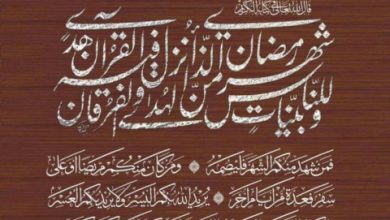 قال الله تعالی فی کتابه الکریم
شهر رمضان الذی أنزل فیه القرآن هدی
للناس و بینات من الهدی و الفرقان
فمن شهد منکم الشهر فلیصمه و من کان منکم مریضا او علی
سفر فعدة من ایام اخر یرید الله بکم الیسر و لا یرید بکم العسر